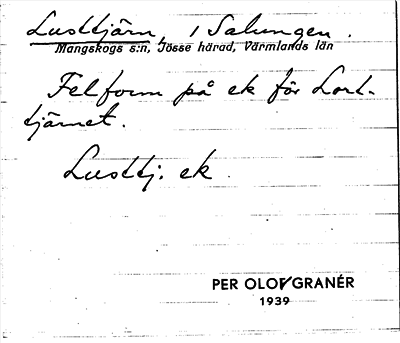 Lusttjärn, i Salungen.
Mangskogs s:n, Jösse härad, Värmlands län
Felform på ek för Lort-
tjärnet.
Lusttj. ek
PER OLOF GRANÉR
1939